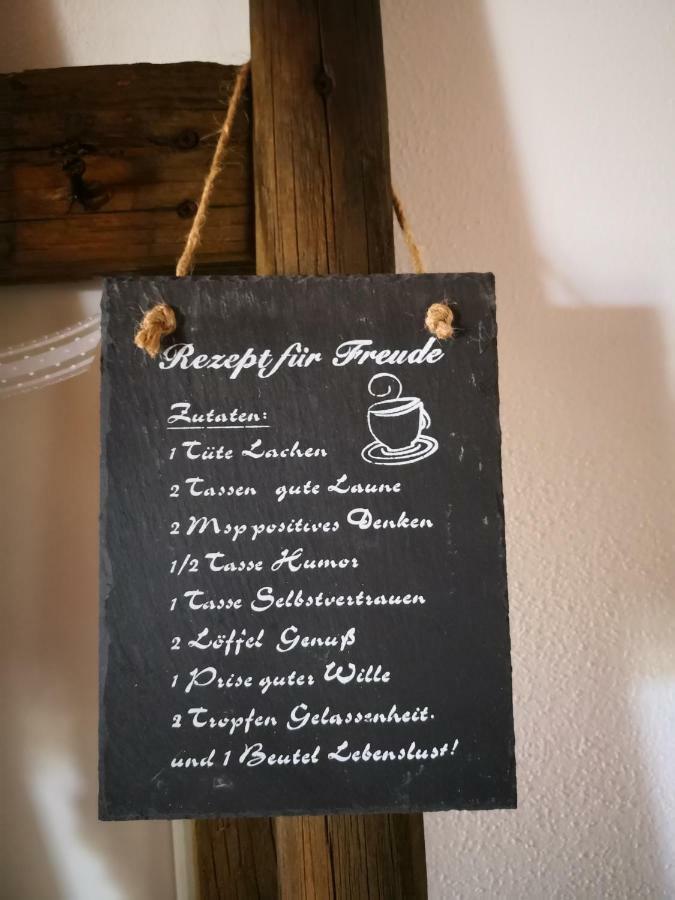 Rezept für Freude
Zutaten:
1 Tüte Lachen
2 Tassen gute Laune
2 Msp positives Denken
1/2 Tasse Humor
1 Tasse Selbstvertrauen
2 Löffel Genuß
1 Prise guter Wille
2 Tropfen Gelassenheit.
und 1 Beutel Lebenslust!